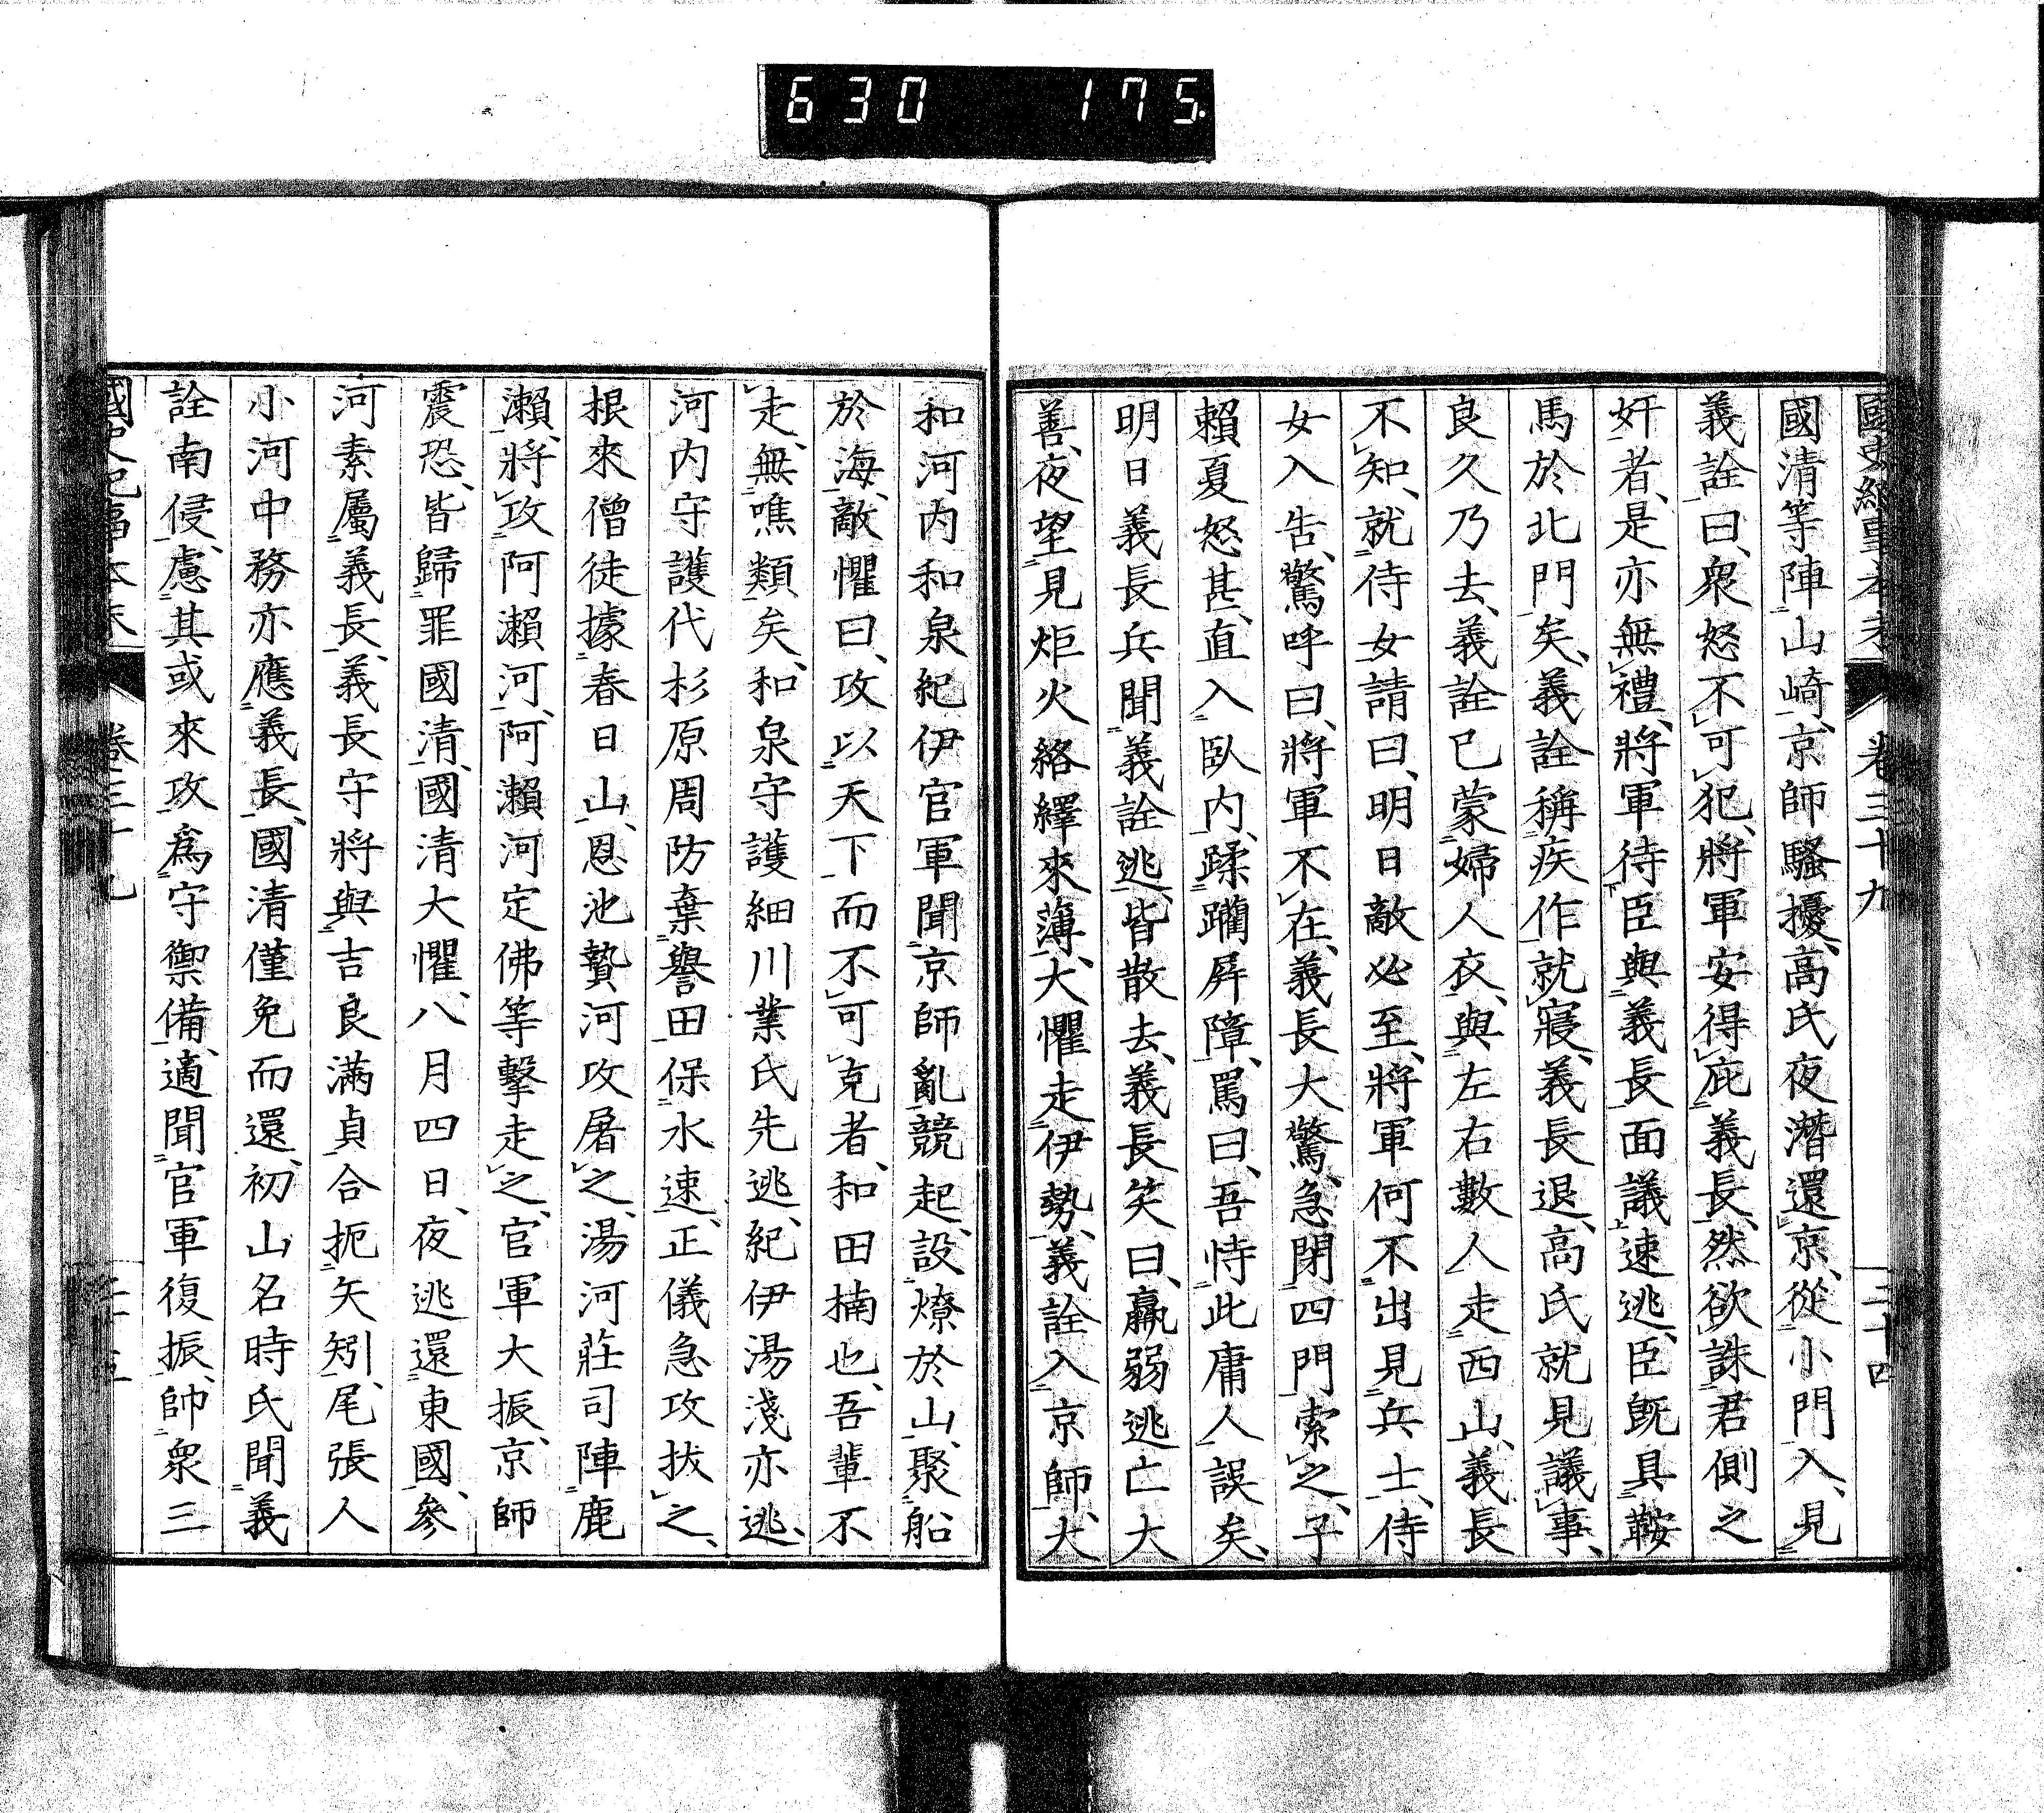 630 175
國史紀事本末 卷三十九 三十四
國清等陣山崎、京師騷擾、高氏夜潛還京、從小門入、見
義詮曰、衆怒不可犯、將軍安得庇義長、然欲誅君側之
奸者、是亦無禮、將軍待臣與義長面議、速逃、臣既具鞍
馬於北門矣、義詮稱疾作、就寢、義長退、高氏就見議事、
良久乃去、義詮已蒙婦人衣、與左右數人走西山、義長
不知、就侍女請曰、明日敵必至、將軍何不出見兵士、侍
女入告、驚呼曰、將軍不在、義長大驚、急閉四門索之、子
賴夏怒甚、直入臥内、蹂躪屏障、罵曰、吾恃此庸人誤矣、
明日義長兵聞義詮逃、皆散去、義長笑曰、羸弱逃亡大
善、夜望見炬火絡繹來薄、大懼走伊勢、義詮入京師、大
和河内和泉紀伊官軍聞京師亂競起、設燎於山、聚船
於海、敵懼曰、攻以天下而不可克者、和田楠也、吾輩不
走、無噍類矣、和泉守護細川業氏先逃、紀伊湯淺亦逃、
河内守護代杉原周防棄譽田保水速、正儀急攻拔之、
根來僧徒據春日山、恩池贄河攻屠之、湯河莊司陣鹿
瀨、將攻阿瀨河、阿瀨河定佛等擊走之、官軍大振、京師
震恐、皆歸罪國清、國清大懼、八月四日、夜逃還東國、參
河素屬義長、義長守將與吉良滿貞合扼矢矧、尾張人
小河中務亦應義長、國清僅免而還、初山名時氏聞義
詮南侵、慮其或來攻、爲守禦備、適聞官軍復振、帥衆三
國史紀事本末 卷三十九